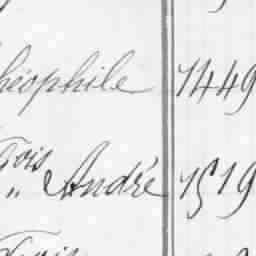 héophile 1449
Frois
" André 1519